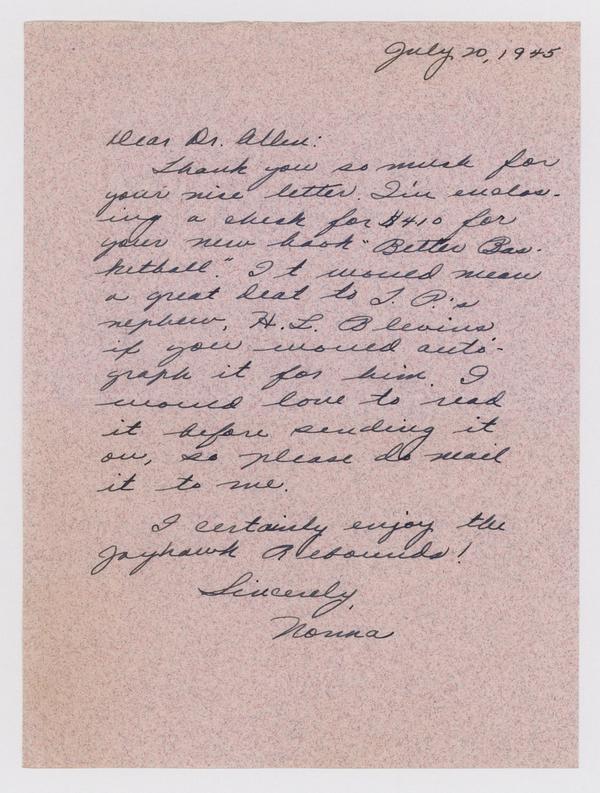 July 20, 1945
Dear Dr. Allen:
Thank you so much for
your nice letter. I'm enclos-
ing a check for $4.10 for
your new book "Better Bas-
ketball." It would mean
a great deal to T. P.'s
nephew, H. L. Blevins
if you would auto-
graph it for him. I
would love to read
it before sending it
on, so please do mail
it to me.
I certainly enjoy the
Jayhawk Rebounds!
Sincerely,
Norma